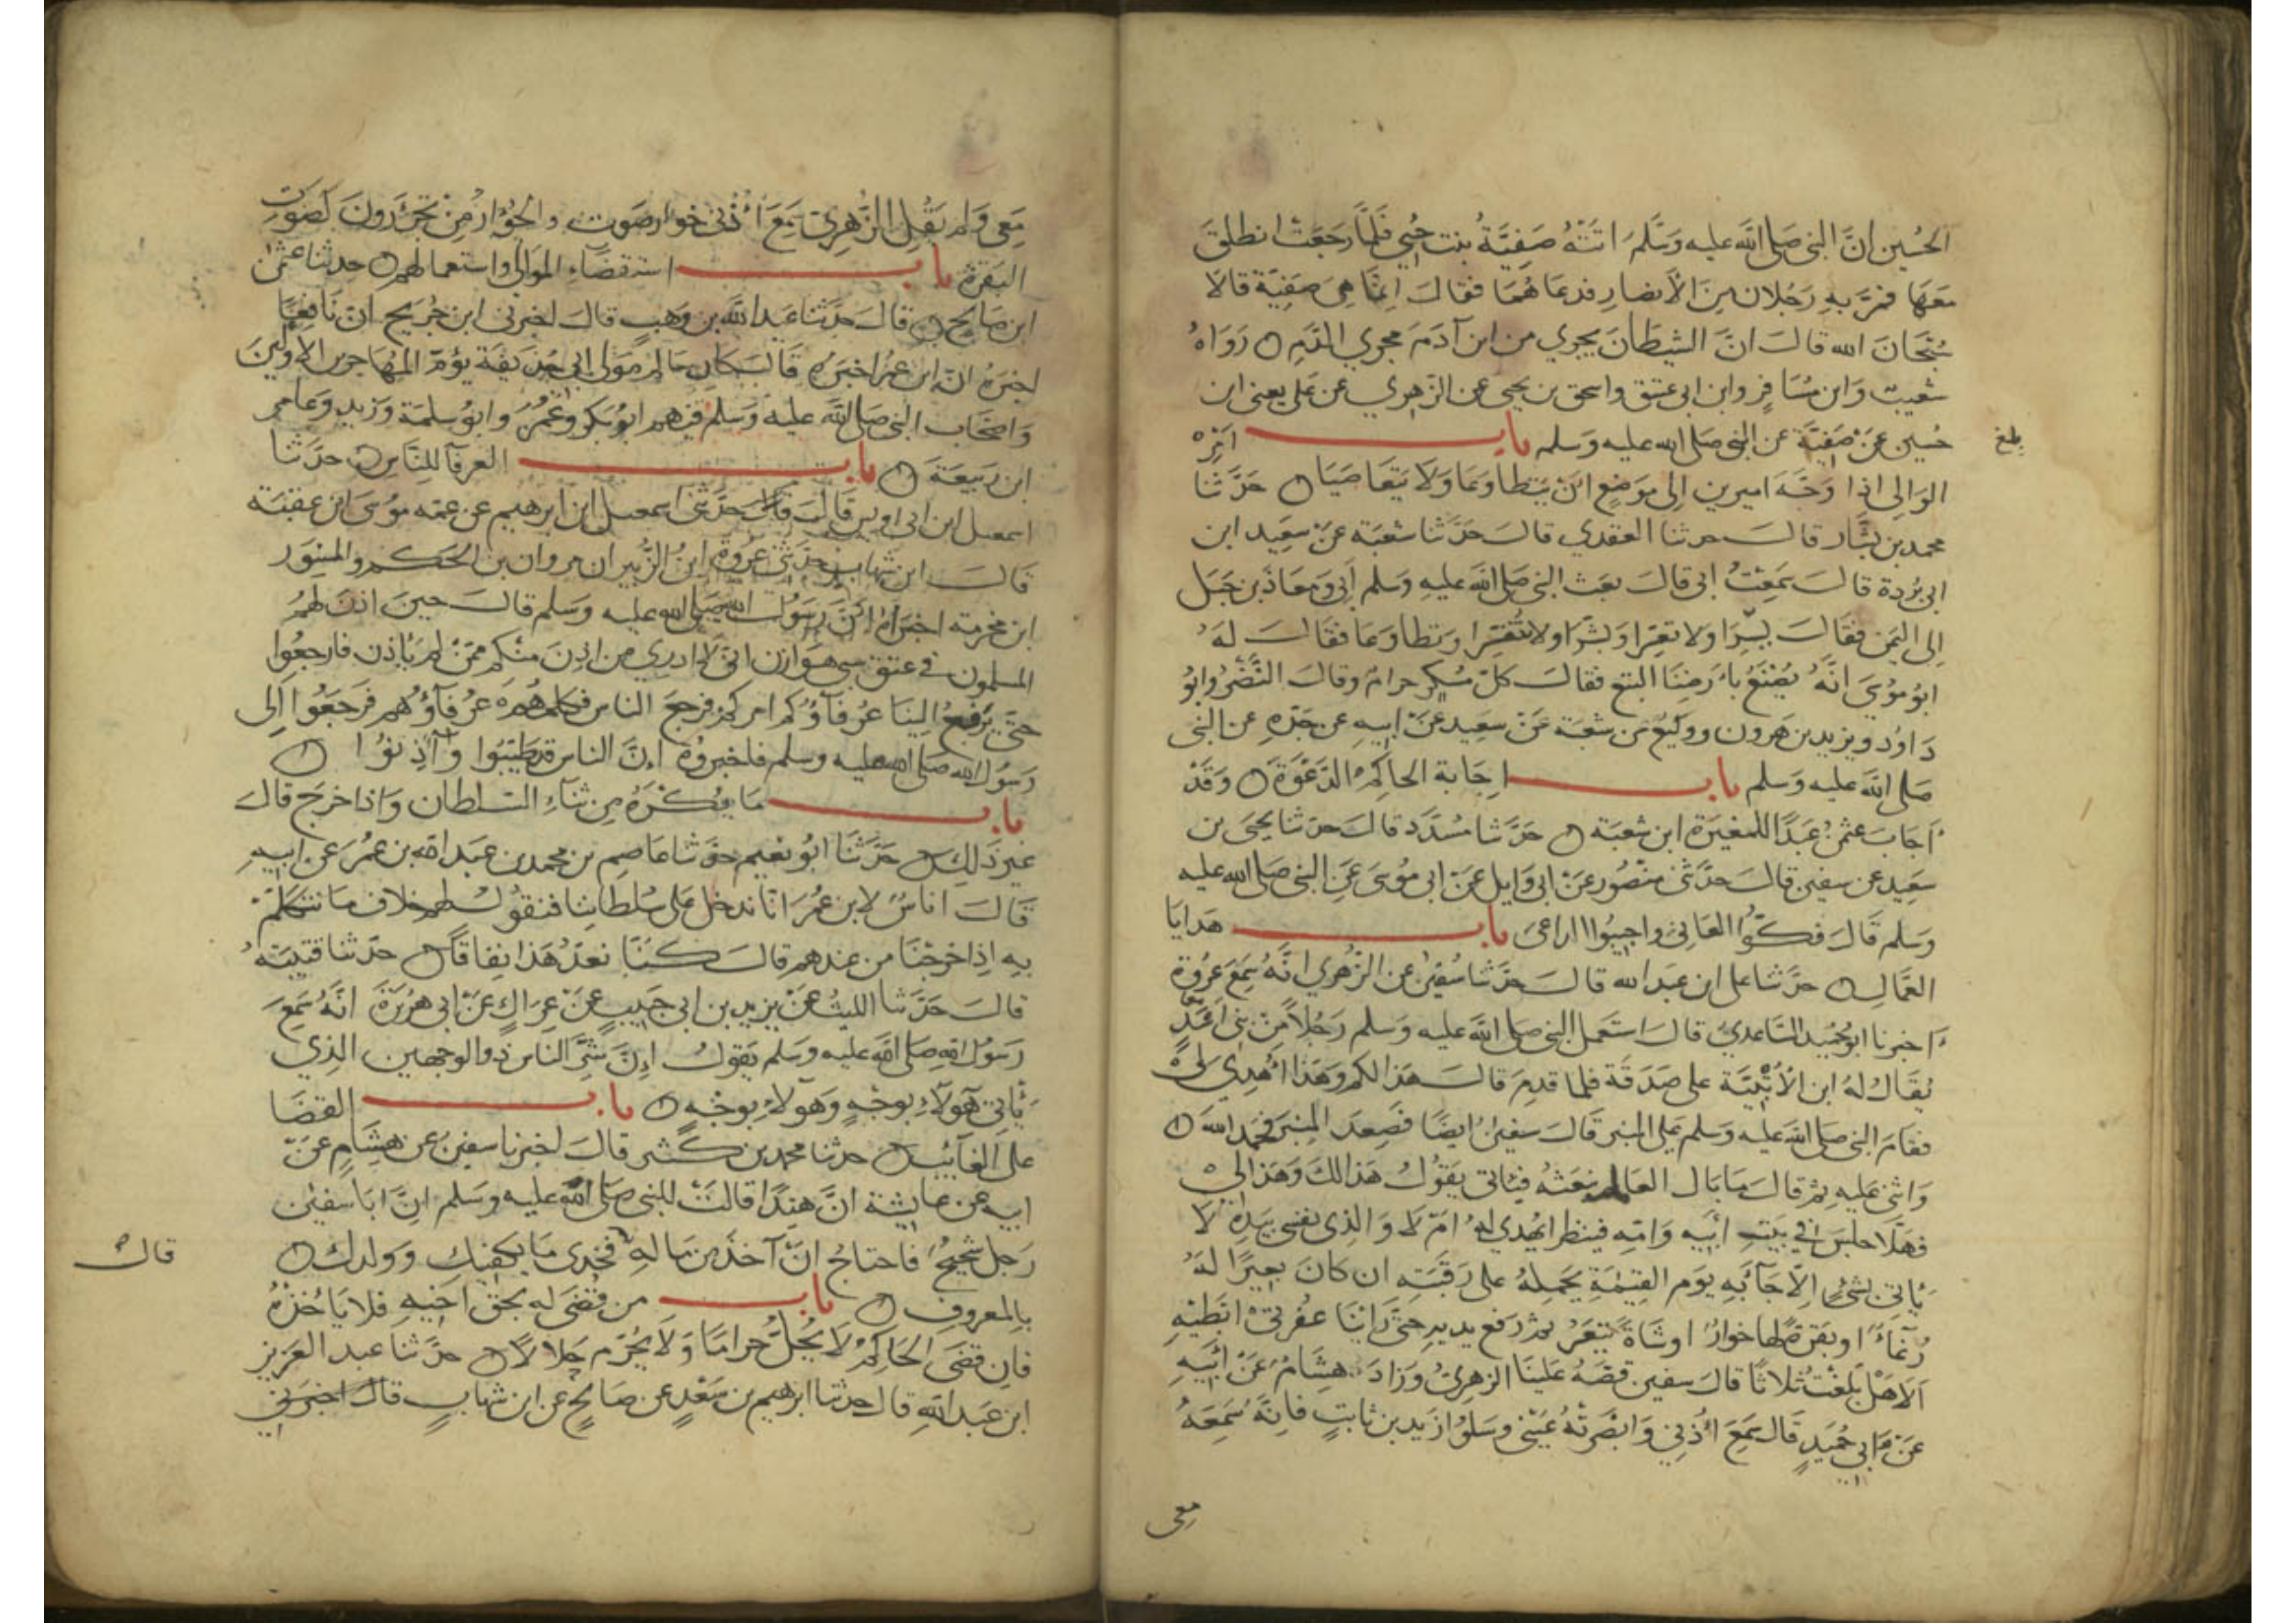 الحُسين انَّ النبى صَلى الله عليه وَسَلّمَ اتَتْهُ صَفِيَّةُ بنت حُيي فَلمّا رَجَعَت انطلقَ
مَعَهَا فمَرَّ بهِ رَجُلان مِنَ الأنصَارِ فدعَاهُمَا فقالَ اِنّمَا هِىَ صَفِيّة قالا
سُبْحَانَ الله قالَ انَّ الشيطَانَ يجري من ابن آدَمَ مجري الدَّمِ رَوَاهُ
شعيبٌ وَابن مُسَافِرٍ وابن ابى عتيق واسحق بن يحيى عن الزّهري عن على يعنى ابن
حُسين عَنْ صَفِيّة عن النبى صَلى الله عليه وَسَلم بابـــ امْرِ
بلغ
الوَالِى اذا وَجَّهَ اميرين اِلى مَوضِعٍ انْ يَتطاوَعَا وَلا يَتعَاصَيَا حَدَّثنا
محمد بن بَشّار قالَ حدثنا العقدي قالَ حَدَّثنا شعبَة عَنْ سعَيد ابن
ابى بُردة قالَ سَمِعْتُ ابى قالَ بَعَث النبى صَلى الله عليهِ وَسَلم اَبِى وَمعَاذ بن جَبَل
اِلى اليَمن فقالَ يسِّرَا ولا تعسِّرَا وَبشِّرَا ولا تُنَفِّرَا وَتطاوَعَا فقالَ لهُ
ابوُ مُوسَى انَّهُ يُصْنَعُ بارْضِنَا البتع فقالَ كلّ مُسْكِر حرامٌ وقالَ النَّضْرُ وابوُ
دَاوُد ويزيد بن هَرون ووَكيعٌ عَن شعبَة عَنْ سَعِيد عَنْ ابيهِ عن جَدّهِ عن النبى
صَلى الله عليه وَسَلم بابـــ اِجَابة الحاكِم الدَّعْوَةَ وَقَدْ
اَجَابَ عثمنُ عَبدًا للمغيَرة ابن شعبَة حَدَّثنا مُسَدَّد قالَ حدثنا يَحيَى بن
سعَيد عن سفين قالَ حَدَّثنى منصُور عَنْ ابى وَايل عَنْ ابى مُوسَى عَنِ النبى صَلى الله عليه
وَسَلم قَالَ فكوُّا العَانِىَ واجيبُوا الداعِىَ بابـــ هَدايَا
العُمّالِ حدَّثنا على ابن عَبد الله قالَ حَدَّثنا سُفيٰنُ عن الزُّهري انَّهُ سَمِعَ عُروَة
اَخبرنا ابوُ حُمَيد السَّاعديُ قالَ استَعمل النبى صَلى الله عليه وَسلم رَجُلاً مِنْ بنى اَسْدٍ
يُقالُ لهُ ابن الأُتْبيَّة على صَدَقَة فلما قدمَ قالَ هَذا لكم وَهَذا اُهدِيَ لى
فقامَ النبى صَلى الله عَليْهِ وَسلم عَلى المنبر قالَ سفينُ ايضًا فصَعِدَ المِنبَر فحَمِدَ الله
وَاثنى عَليهِ ثم قالَ مَا بَال العَامل نبعَثهُ فيَاتى يَقولُ هَذا لكَ وَهَذا لِى
فهَلّا جَلسَ فى بَيتِ ابيهِ وَامّهِ فينظر ايُهْدي لهُ امْ لا وَالذِى نفسى بيَدهِ لا
يَاتِى بشئٍ اِلّا جَآءَ بهِ يوَم القيٰمَةِ يَحمِلهُ على رَقبَتهِ ان كانَ بعِيرًا لهُ
رُغآءٌ او بَقرَةً لها خوارٌ اوشاةً تيْعَرُ ثم رَفع يديهِ حتَّى رَاينَا عُفرتىْ ابطيْهِ
اَلا هَلْ بَلّغْتُ ثلاثًا قالَ سفين قصَّهُ عَلينَا الزهريُ وَزادَ هِشامٌ عَنْ ابيهِ
عَنْ ابى حُمَيدٍ قالَ سَمِعَ اُذُنِى وَابصَرَتهُ عَينى وَسَلوُا زَيد بن ثابتٍ فانَّهُ سَمِعَهُ
معى
مَعِى وَلم يَقُل الزّهرِىّ سَمِعَ اُذُنِى خوار صَوت والجُؤَار مِنْ تَجْئَرونَ كصَوتِ
البَقرة بابـــ استقضَآءِ الموَالى واستعمالهم حدثنا عثمٰن
ابن صَالح قالَ حَدَّثنا عَبدُ الله بن وَهبٍ قالَ اخبرنى ابن جُرَيج انّ نَافِعًا
اخبَرَهُ انّ ابن عمرَ اخبَرَهُ قَالَ كَان سَالم مَوْلى ابى حُذيفَة يَؤمّ المُهَاجرين الاوّلينَ
وَاصحَاب النبى صَلى الله عليه وَسلم فيهم ابوُبَكرٍ وَعُمَرُ وابوُ سَلمة وَزيدٍ وَعَامر
ابن رَبيعَة بابـــ العرفآ للنَّاسِ حدَّثنا
اسمعيل ابن ابى اويس قَالَ حَدَّثنى اسمعيل ابن ابرهيم عن عمّه موُسَى ابن عقبَة
قالَ ابن شهاب حَدَّثنى عُروة ابنُ الزُّبير ان مروان بن الحَكم والمِسْوَر
ابن مخرمة اخبَرَاهُ انَّ رَسُولَ الله صَلى الله عليه وَسَلم قالَ حينَ اذنَ لهمُ
المسلمون فى عتق سبى هوَازن انى لا ادرى من اذِنَ منكم ممّنْ لم يَاذن فارجعُوا
حتَّى يَرْفعَ اِلينَا عُرَفَآؤُكم امركمْ فرجعَ الناس فكلمهُم عُرَفَآؤُهم فَرَجَعُوا اِلى
رَسُول الله صَلى الله عليه وسلم فاخبروُهُ انَّ الناس قد طيَّبُوا وَاَذِنوُا
بابـــ مَا يُكْرَهُ مِن ثنآءِ السّلطان وَاذا خرَج قالَ
غير ذَلِكَ حَدَّثنَا ابوُ نعَيم حدّثنا عَاصِم بن محمد بن عَبد الله بن عُمرَ عن ابيهِ
قَالَ اناسٌ لابن عُمَر انّا ندخل عَلى سُلطاننا فنقوُل لهم خلاف مَا نتكلّم
بهِ اِذا خرَجنَا من عندهم قالَ كنّا نعُدّ هَذا نِفاقًا حدّثنا قتيبَة
قالَ حَدَّثنا الليثُ عَنْ يزيد بن ابى حَبيبٍ عَنْ عِرَاكٍ عَنْ ابى هُرَيْرَة انّهُ سَمِعَ
رَسُول الله صَلى الله عليه وَسلم يَقولُ انَّ شرَّ الناس ذو الوجهين الذي
يَاتِى هَولآءِ بوجْهٍ وَهَولآءِ بِوجْهٍ بابـــ القضَا
عَلى الغَآئِبِ حدثنا محمد بن كثير قالَ اخبرنا سفينُ عن هِشَامٍ عَنْ
ابيه عن عايشة انَّ هنِدًا قالتْ للنبى صَلى الله عليه وسَلم انَّ ابَا سفيٰن
رَجل شحيحٌ فاحتاجُ انْ آخذ من مَاله قالَ خُذِى مَا يكفيكِ ووَلدكِ
قالَ
بالمعروفِ بابـــ من قُضىَ له بحَق اَخيهِ فلا يَاخُذهُ
فان قضَى الحَاكِمْ لا يُحِلُّ حَرامًا وَلا يُحَرّم حَلالًا حدَّثنا عبد العَزيز
ابن عَبد الله قالَ حدثنا ابرهيم بن سَعْدٍ عن صَالحٍ عن ابن شهابٍ قالَ اخبرَنِى